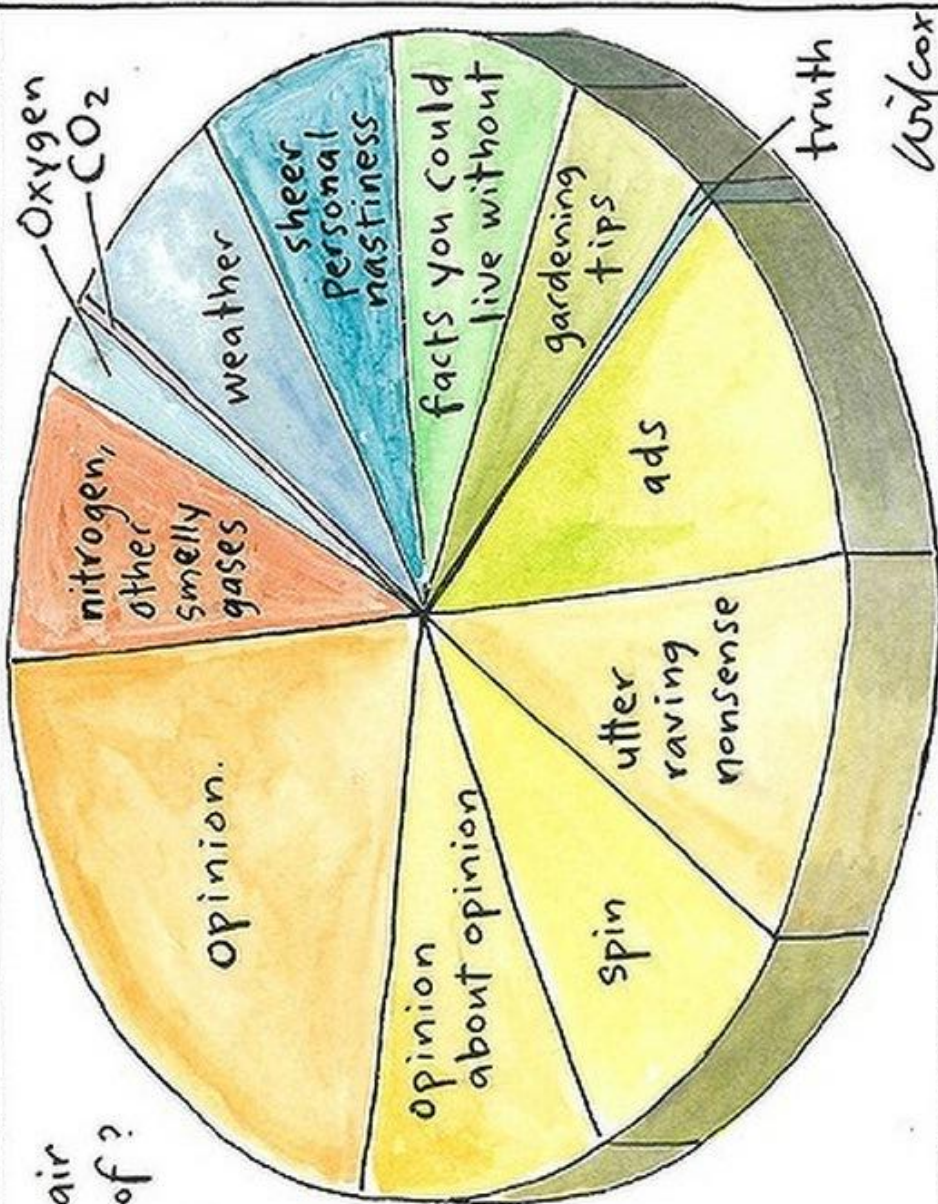 air
of?
Oxygen
CO2
nitrogen,
other
smelly
gases
weather
sheer
personal
nastiness
facts you could
live without
gardening
tips
truth
ads
utter
raving
nonsense
spin
opinion
about opinion
Opinion.
Wilcox